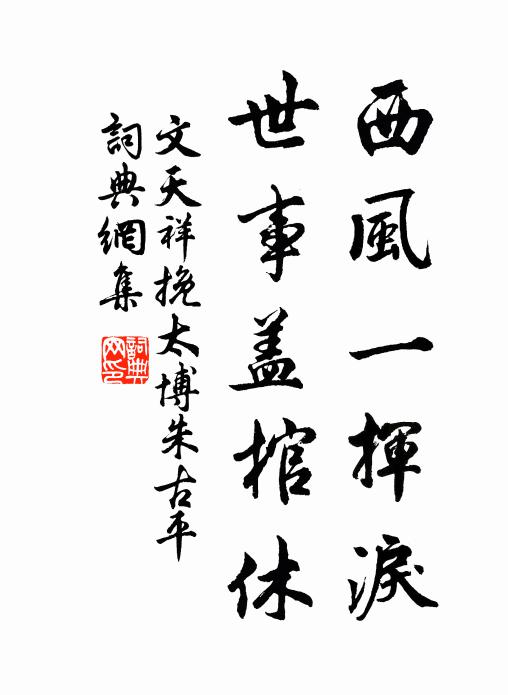 西風一揮淚
世事盖棺休
文天祥挽太博朱古平
詞典網集
詞典網印